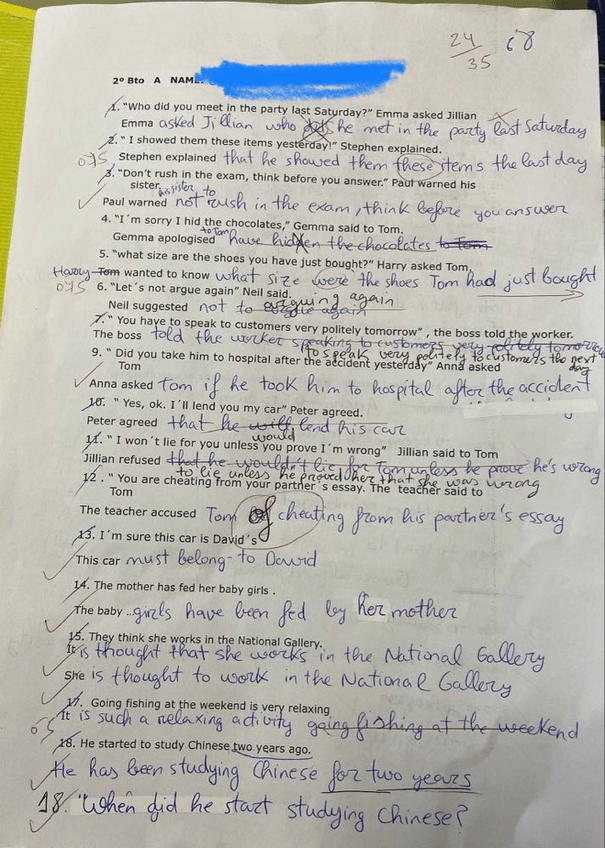 24
35
68
2º Bto A NAME
1. "Who did you meet in the party last Saturday?" Emma asked Jillian
Emma asked Jillian who he met in the party last Saturday
2. " I showed them these items yesterday!" Stephen explained.
075 Stephen explained that he showed them these items the last day
3. "Don't rush in the exam, think before you answer." Paul warned his
sister. his sister to
Paul warned not rush in the exam, think before you answer
4. "I´m sorry I hid the chocolates," Gemma said to Tom.
to Tom
Gemma apologised have hidden the chocolates to Tom
5. "what size are the shoes you have just bought?" Harry asked Tom,
Harry Tom wanted to know what size were the shoes Tom had just bought
075 6. "Let´s not argue again" Neil said.
arguing again
Neil suggested not to argue again
7. " You have to speak to customers very politely tomorrow" , the boss told the worker.
The boss told the worker speaking to customers very politely tomorrow
to speak very politely to customers the next day
9. " Did you take him to hospital after the accident yesterday" Anna asked
Tom
Anna asked Tom if he took him to hospital after the accident
10. " Yes, ok. I´ll lend you my car" Peter agreed.
Peter agreed that he will lend his car
would
11. " I won´t lie for you unless you prove I´m wrong" Jillian said to Tom
Jillian refused that he wouldn't lie for Tom unless he prove he's wrong
to lie unless he proved her that she was wrong
12. " You are cheating from your partner´s essay. The teacher said to
Tom
The teacher accused Tom of cheating from his partner's essay
13. I´m sure this car is David´s
This car must belong to David
14. The mother has fed her baby girls .
The baby ..girls have been fed by her mother
15. They think she works in the National Gallery.
It is thought that she works in the National Gallery
She is thought to work in the National Gallery
17. Going fishing at the weekend is very relaxing
05 It is such a relaxing activity going fishing at the weekend
18. He started to study Chinese two years ago.
He has been studying Chinese for two years
18. "When did he start studying Chinese?